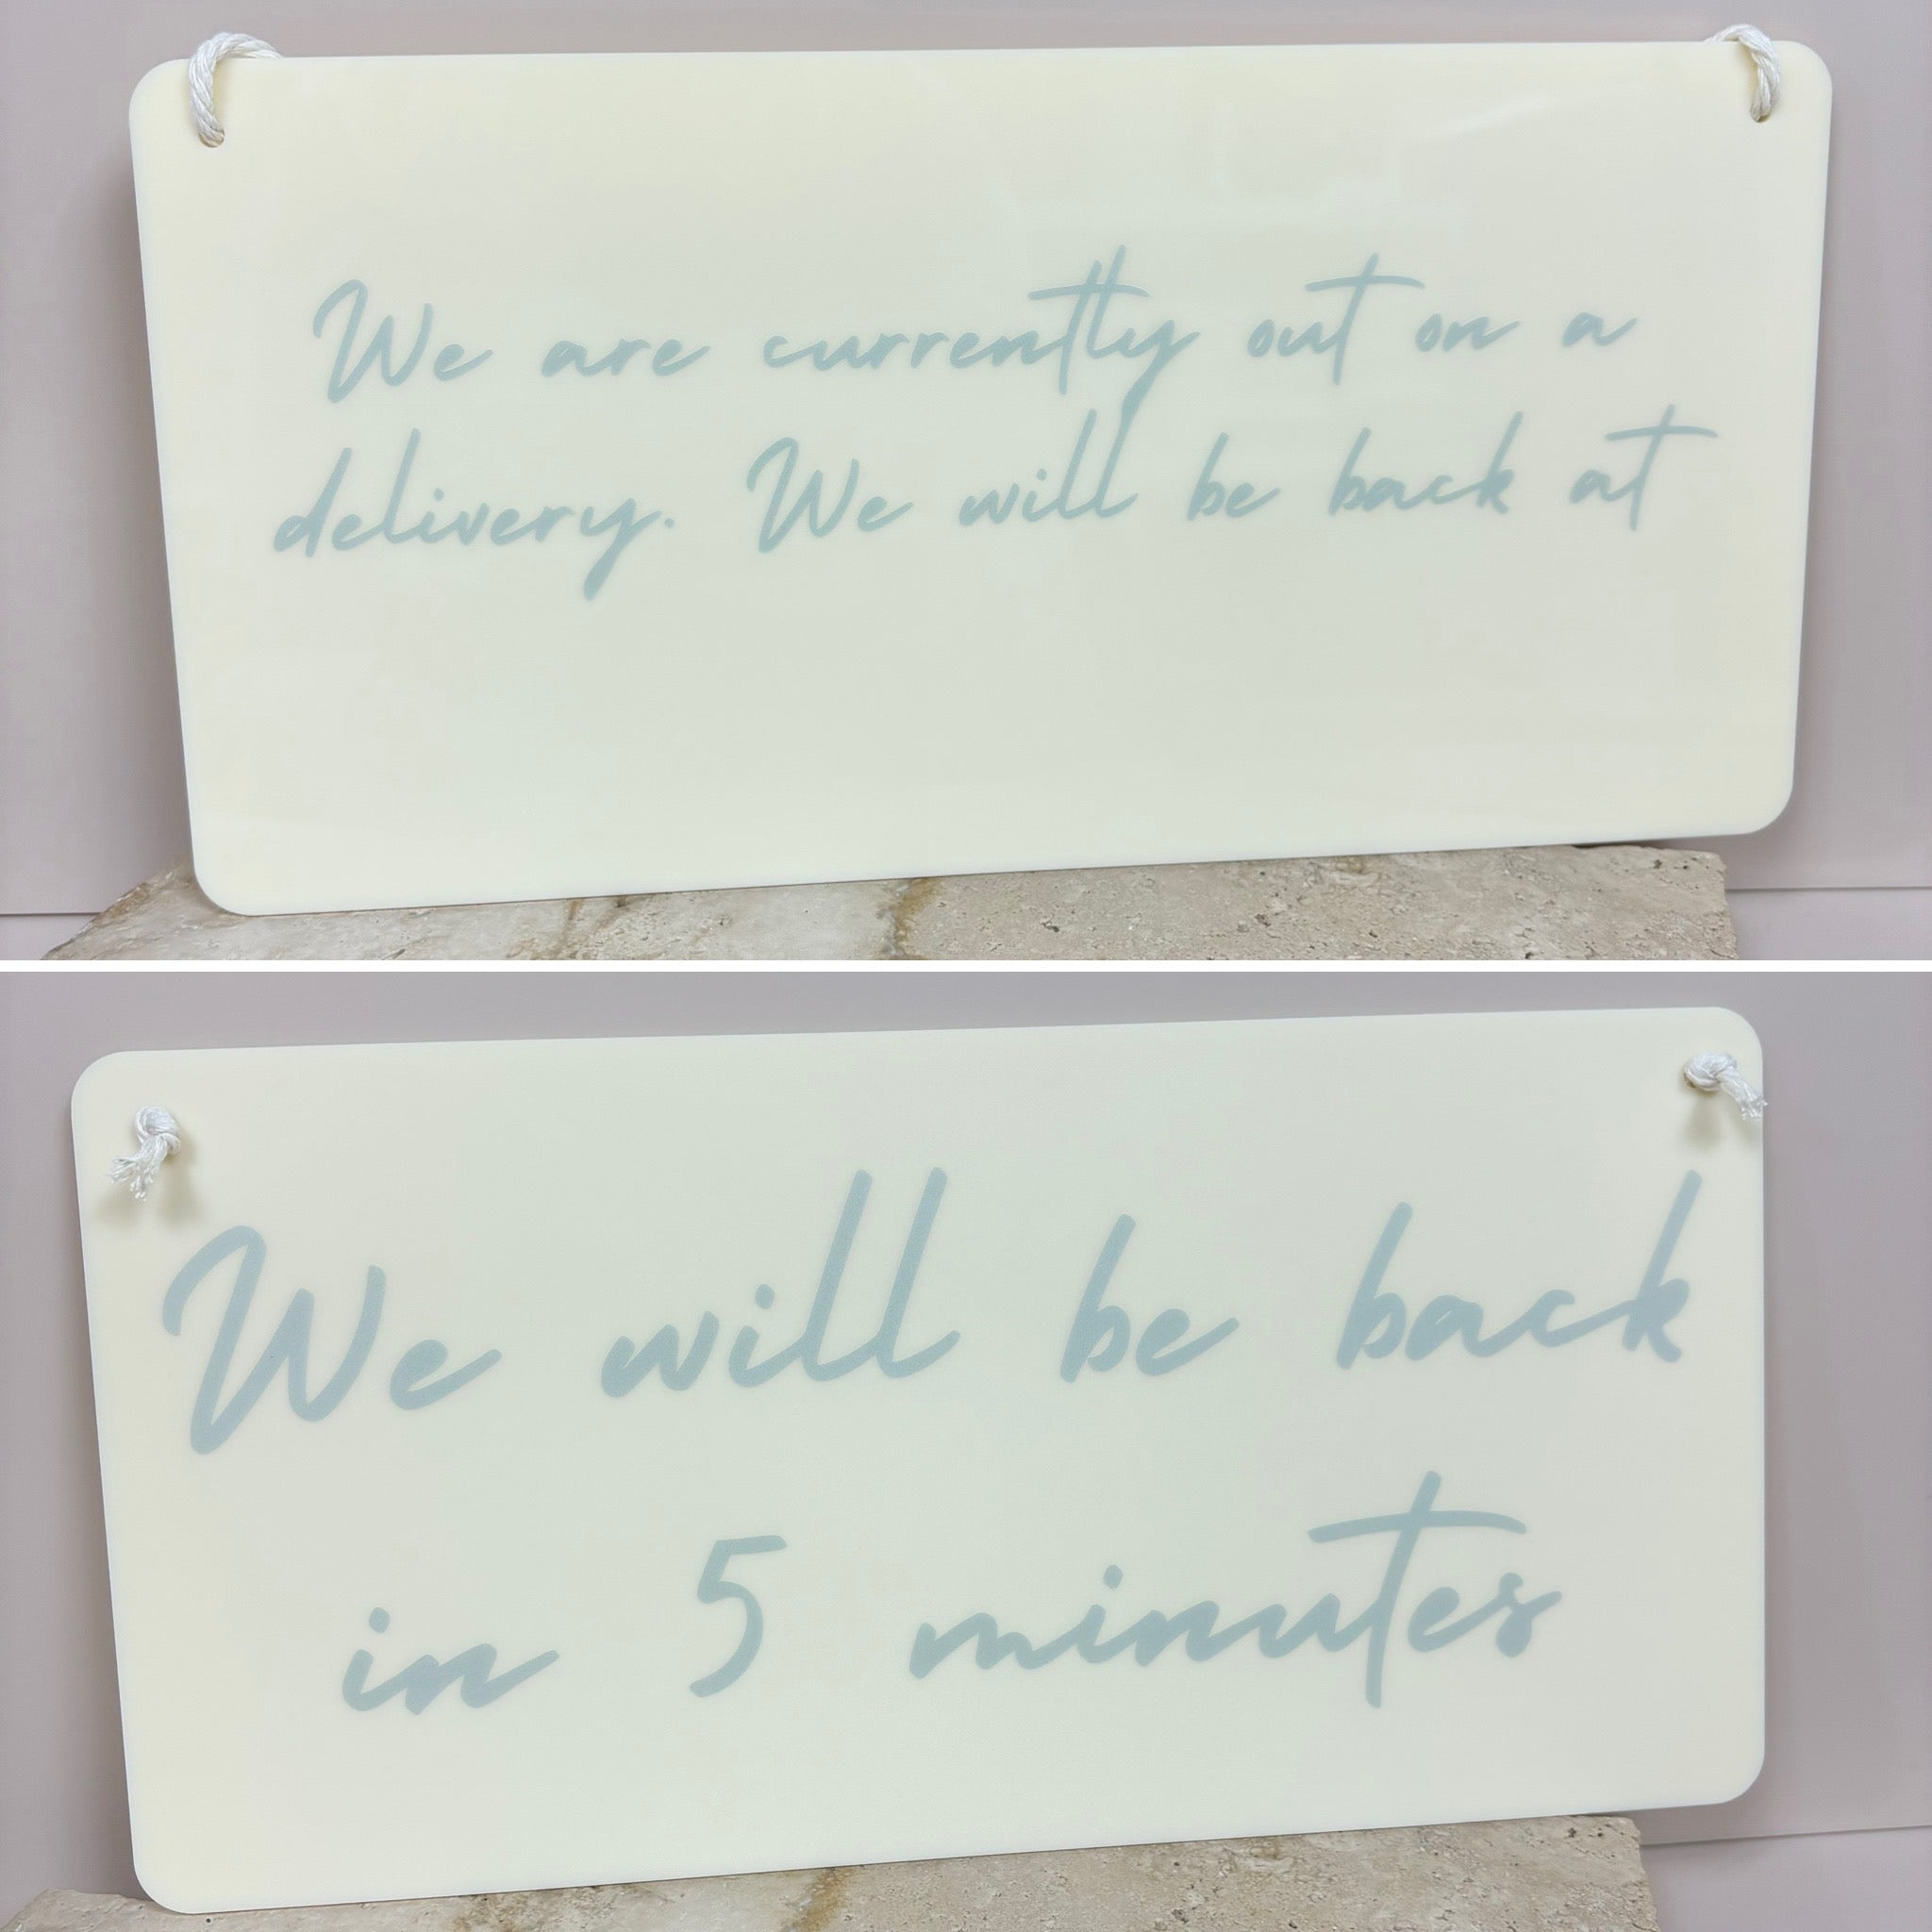 We are currently out on a
delivery. We will be back at
We will be back
in 5 minutes